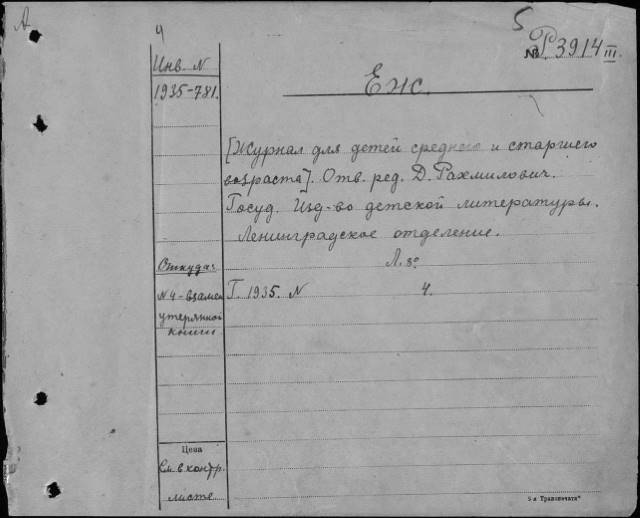 А
4
5
№ Р3914 III
Инв. N
1935-781.
Еж.
[Журнал для детей среднего и старшего
возраста]. Отв. ред. Д. Рахмилович.
Госуд. Изд-во детской литературы.
Ленинградское отделение.
Л. 8°
Откуда:
N4-взамен
утерянной
книги
Г. 1935. N 4.
Цена
См. в контр.
листе
5-я Транспечать"